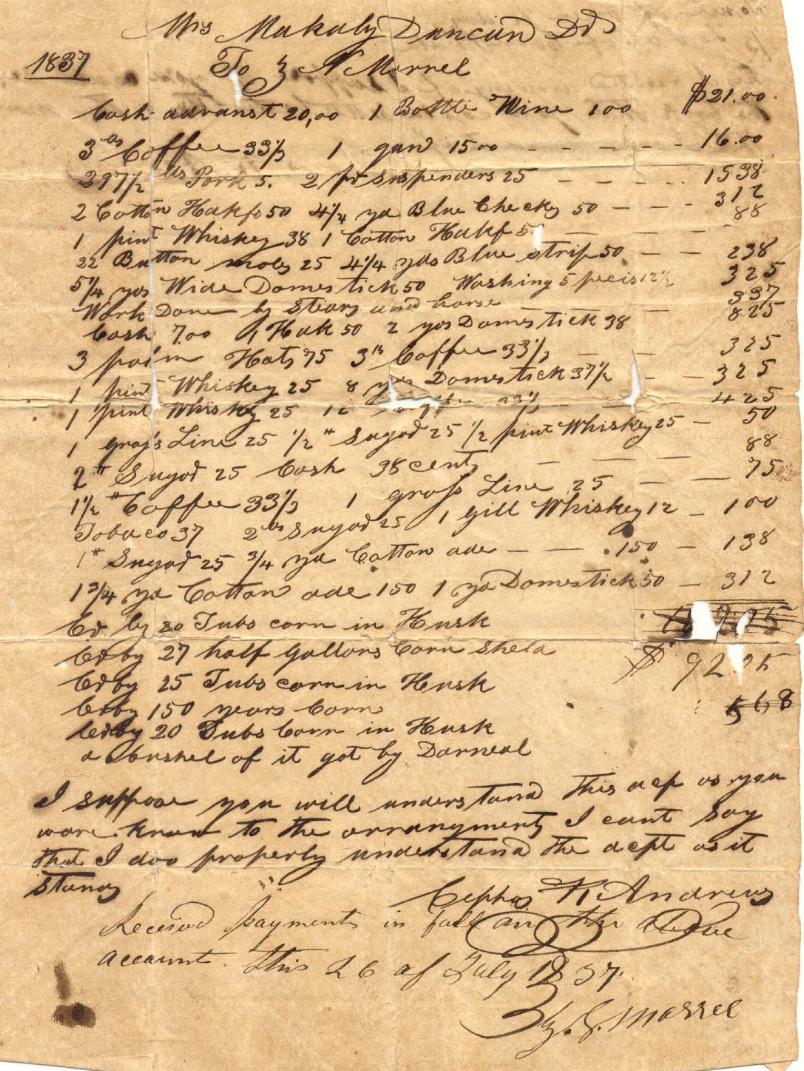 Mrs Makaly Duncan Dr
1837 To Z N Morrel
Cash advanst 20,00 1 Bottle Wine 100 $21.00
3 lbs Coffee 33⅓ 1 gun 15 00 - - - - - 16.00
297½ lbs Pork 5. 2 pr Suspenders 25 - - - - 1538
2 Cotton Hakfs 50 4¼ yd Blue Checks 50 - - - - 312
1 pint Whiskey 38 1 Cotton Hakf 5 - - - - 88
22 Button 25 4¼ yds Blue strip 50 - - 238
5¼ yds Wide Domestick 50 Washing 5 peces 12½ 325
Work Done by Stears and horse 337
Cash 7.00 1 Hak 50 2 yds Domestick 38 825
3 palm Hats 75 3 lb Coffee 33⅓ - - - 325
1 pint Whiskey 25 8 yds Domestick 37½ - - 325
1 pint Whiskey 25 12 33⅓ - - 425
1 grays Line 25 ½ " Sugar 25 ½ pint Whiskey 25 - 50
2 " Sugar 25 Cash 38 cents - - - - 88
1½ " Coffee 33⅓ 1 grass Line 25 - - - 75
Tobaco 37 2 lbs Sugar 25 1 gill Whiskey 12 - 100
1 " Sugar 25 ¾ yd Cotton ade - - .150 - 138
1¾ yd Cotton ade 150 1 yd Domestick 50 - 312
Cr by 20 Tubs corn in Husk
Cr by 27 half Gallons Corn Sheld $ 92
Cr by 25 Tubs corn in Husk
Cr by 150 years Corn 568
Cr by 20 Tubs Corn in Husk
a bushel of it got by Darneal
I suppose you will understand this acp as you
ware know to the arrangments I cant Say
that I doo properly understand the acpt as it
Stands
Cephas K. Andrews
Received payments in full on the above
account this 26 of July 1837.
Z. N. Morrel